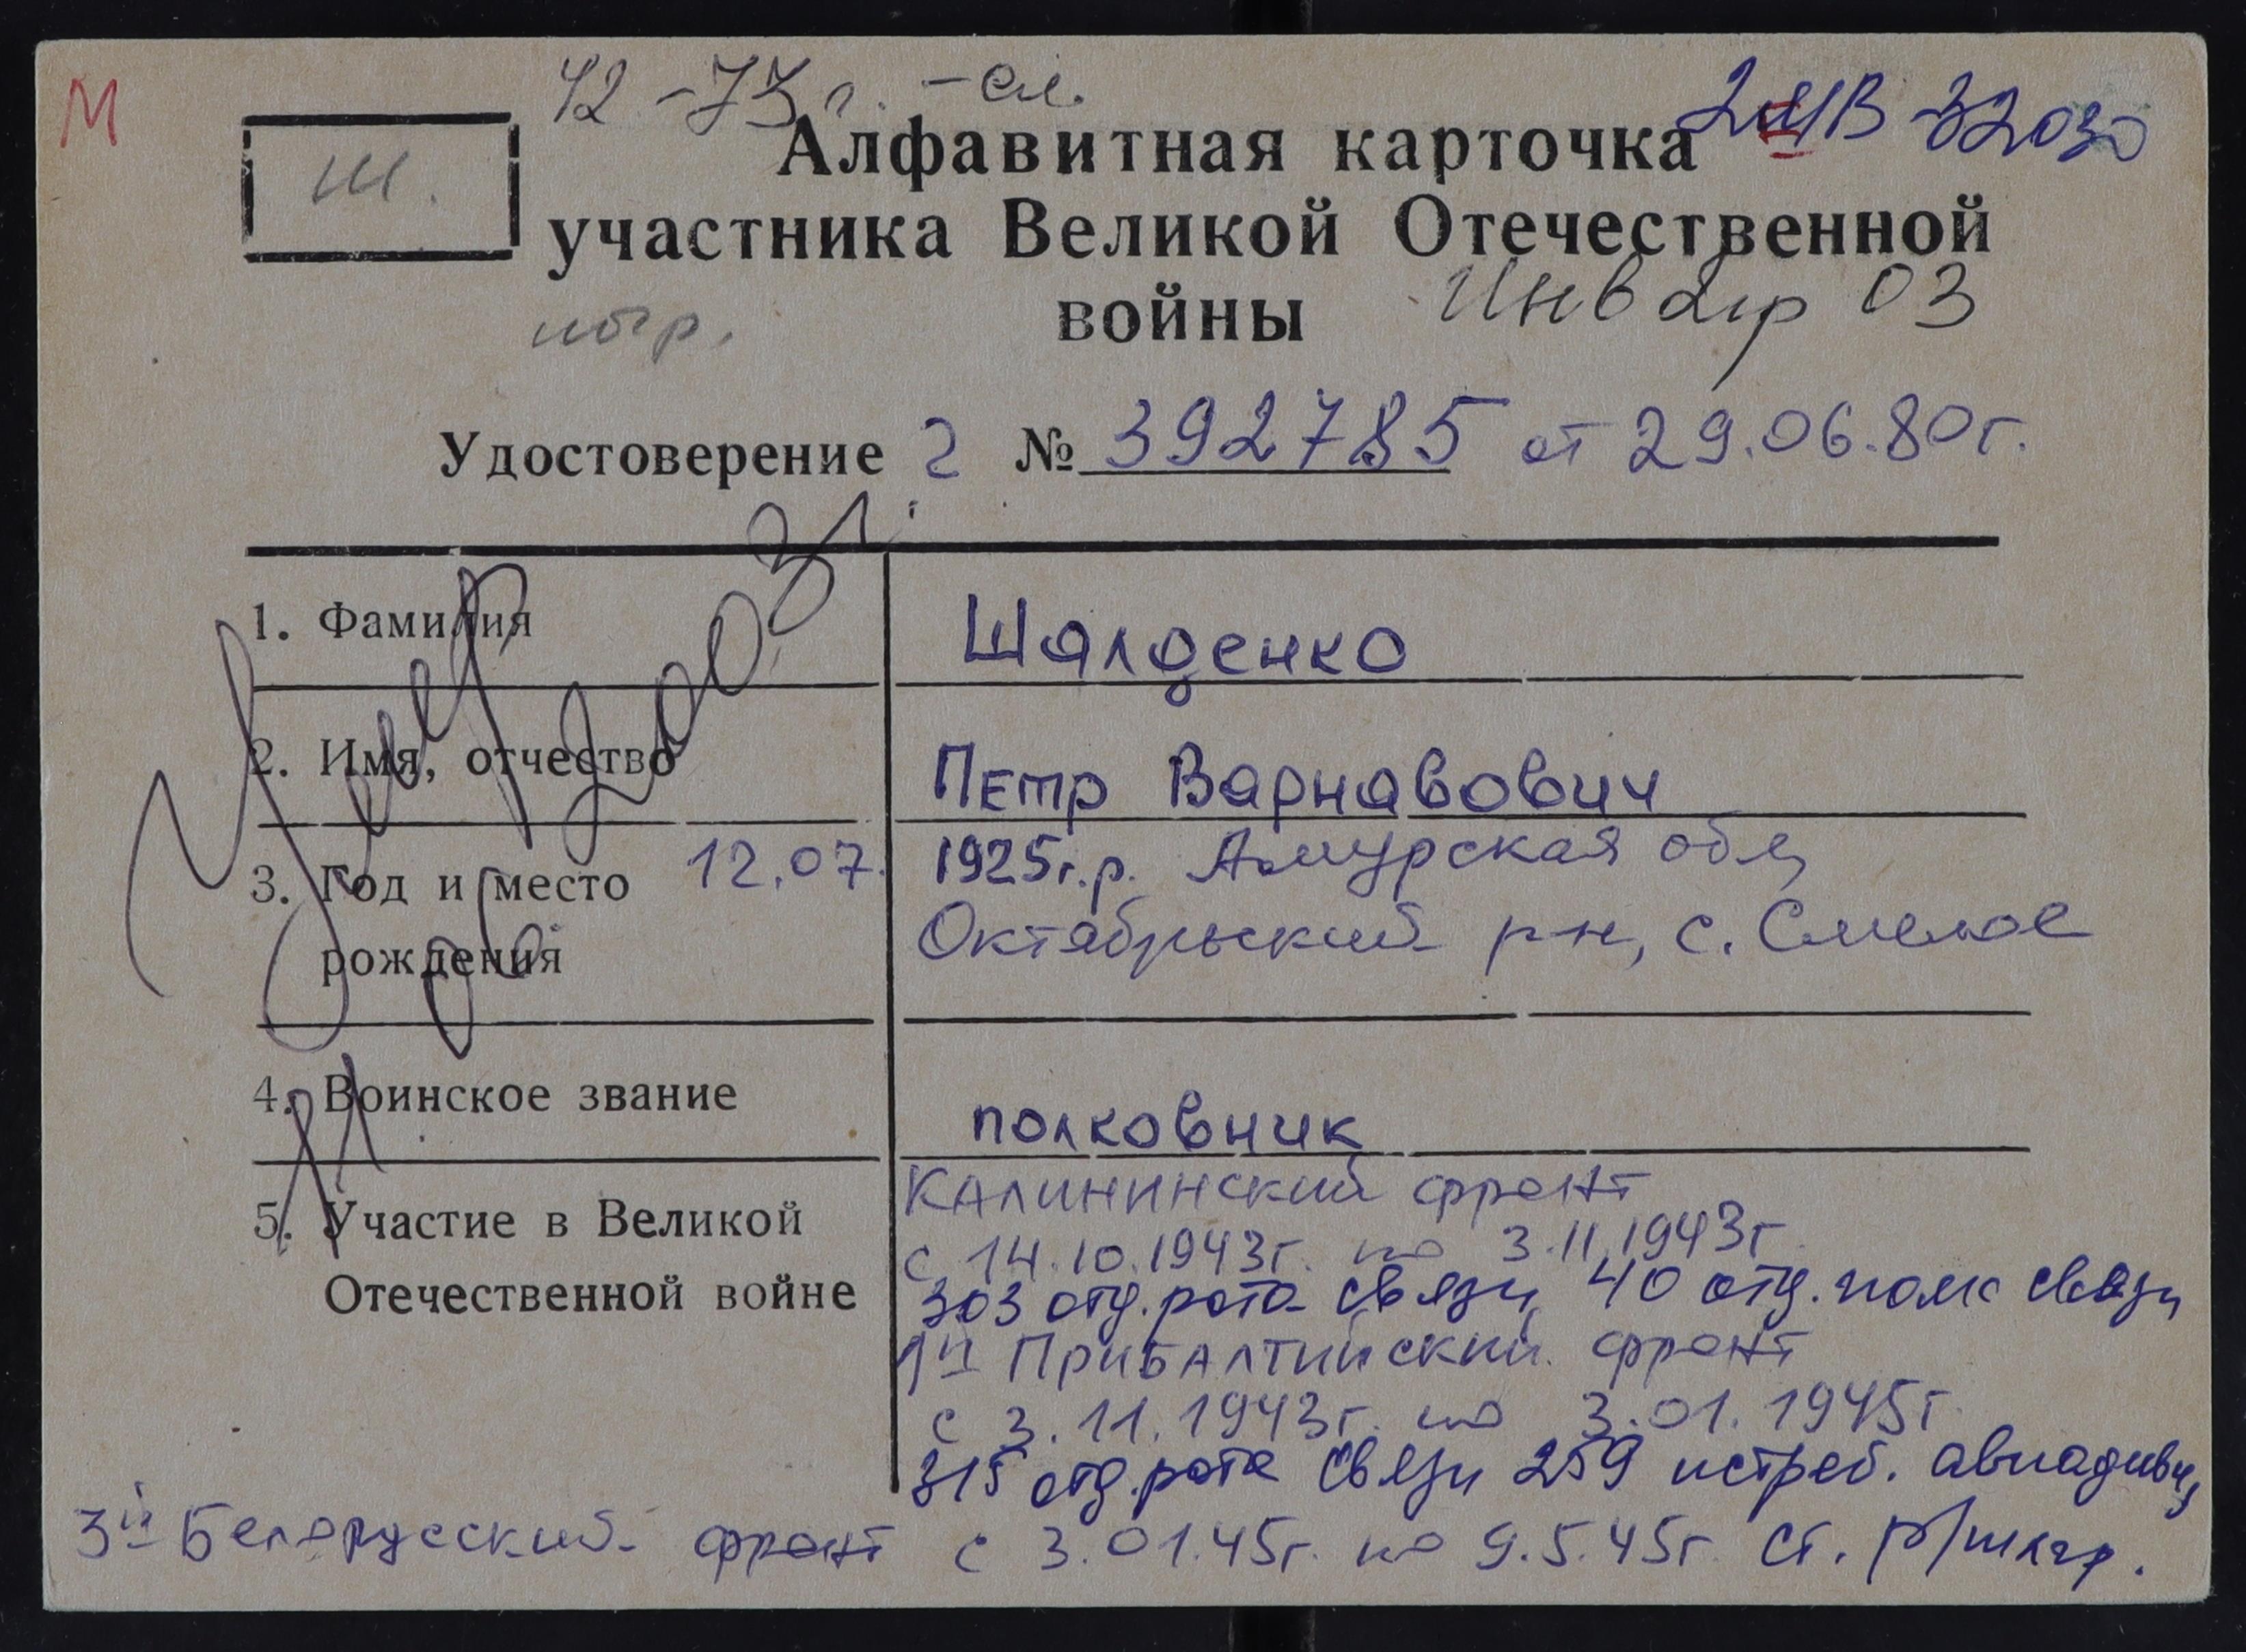 М
42-73г. - сл.
2МВ-32030
Ш.
Алфавитная карточка
участника Великой Отечественной
войны
Инв 2гр 03
Удостоверение Г № 392785 от 29.06.80г.
1. Фамилия Шалденко
2. Имя, отчество Петр Варнавович
3. Год и место 12.07. 1925г.р. Амурская обл,
рождения Октябрьский р-н, с. Смелое
4. Воинское звание полковник
5. Участие в Великой Калининский фронт
Отечественной войне с 14.10.1943г. по 3.11.1943г
303 отд. рота связи, 40 отд. полк связи
1й Прибалтийский фронт
с 3.11.1943г. по 3.01.1945г
315 отд. рота связи 259 истреб. авиадивиз
3й Белорусский фронт с 3.01.45г. по 9.5.45г ст.